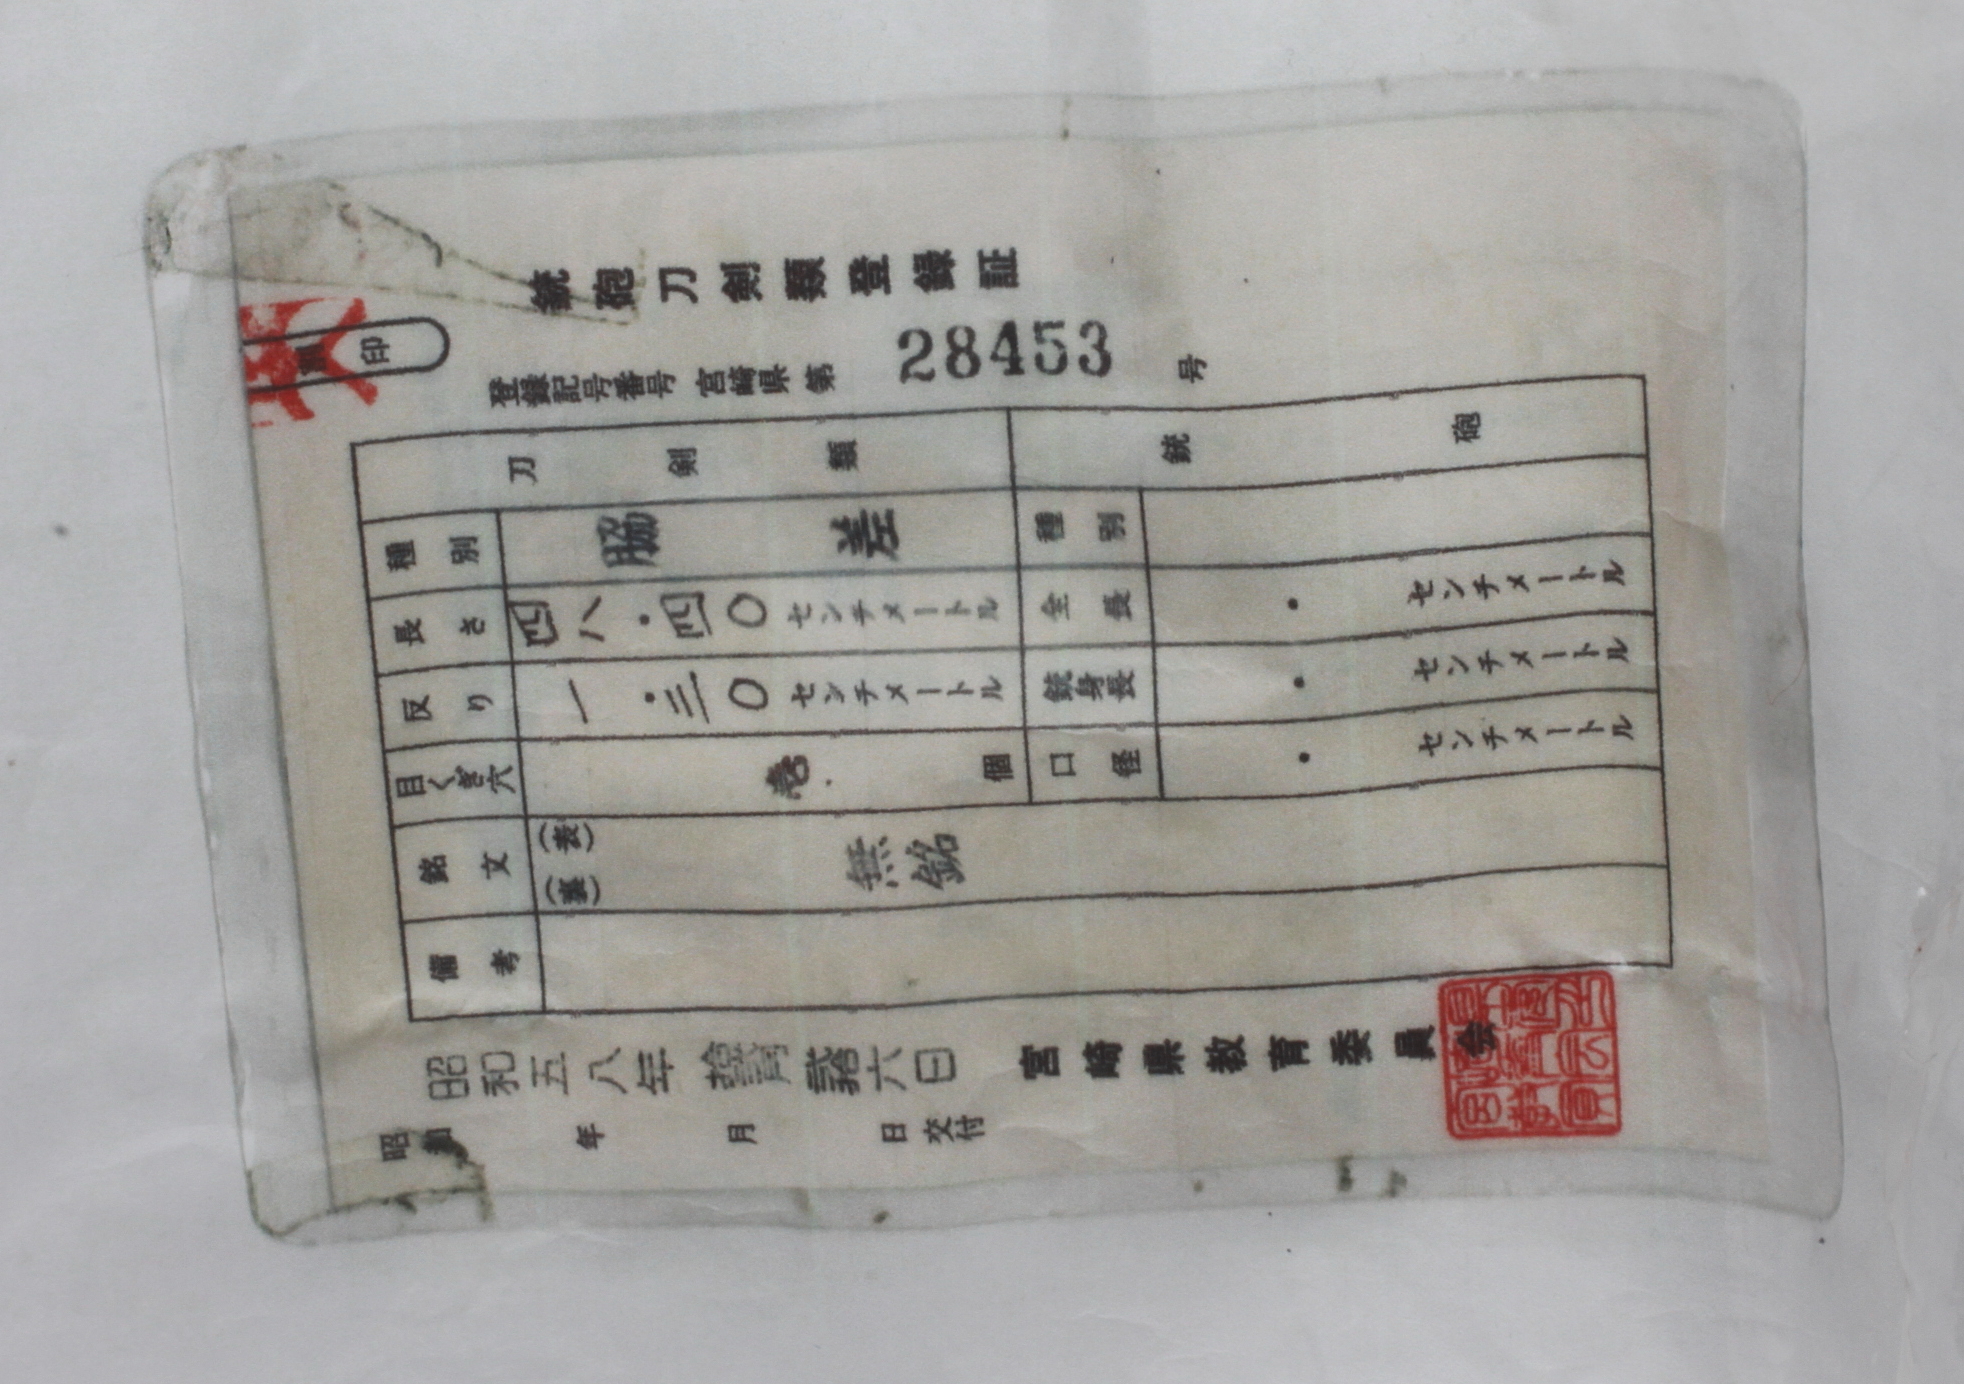 銃砲刀剣類登録証
割印
登録記号番号 宮崎県 第 28453 号
刀剣類
種別 脇差
長さ 四八・四〇センチメートル
反り 一・三〇センチメートル
目くぎ穴 壱 個
銃砲
種別
全長 ・ センチメートル
銃身長 ・ センチメートル
口径 ・ センチメートル
銘文 (表) (裏) 無銘
備考
昭和五八年 月貳拾六日
宮崎県教育委員会
昭和 年 月 日交付